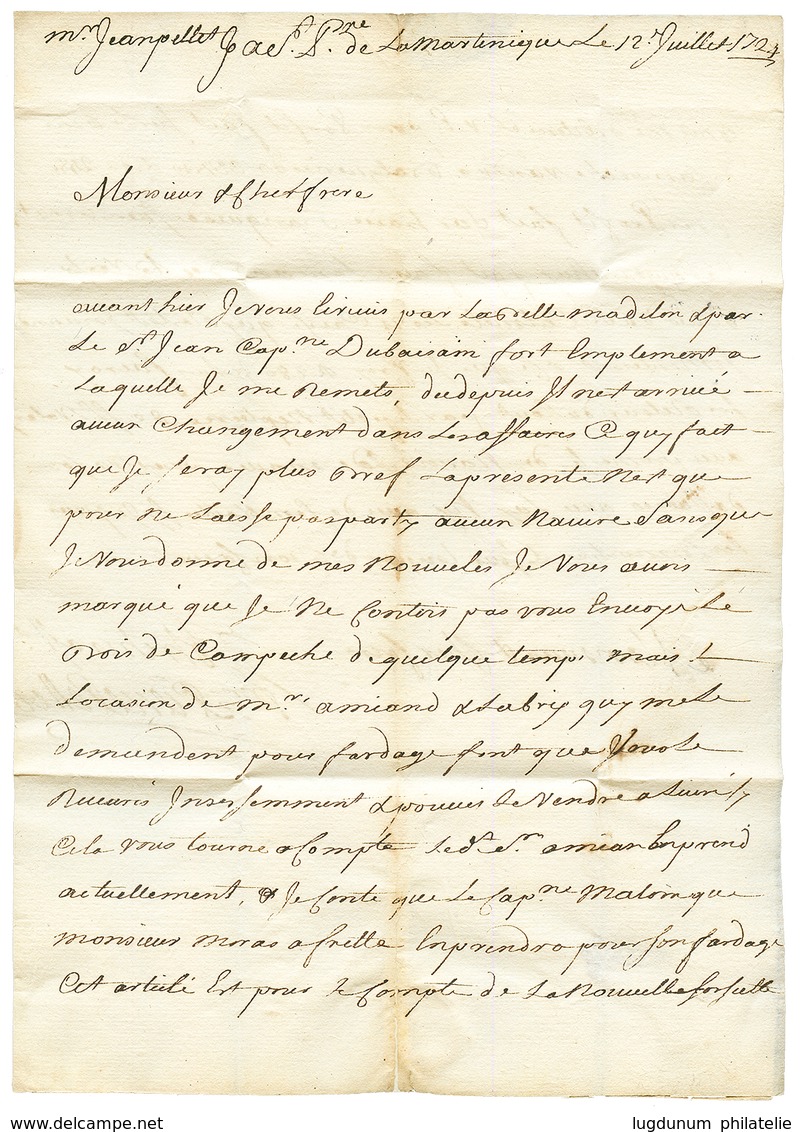 mr. Jean pellet J a St. Pre de La Martinique Le 12e. Juillet 1724
Monsieur & cher frere
auant hier Je vous Ecriuis par La Belle madelon & par
Le Sr. Jean Capne Dubaisain fort Emplement a
Laquelle Je me Remets, du depuis Il nest arriué
aucun Changement dans Les affaires Ce quy fait
que Je seray plus Bref La presente Nest que
pour Ne Laesse pas party aucun Nauire sans que
Je Vous donne de mes Nouveles Je Vous auois
marqué que Je Ne Contois pas vous Envoyé Le
Bois de Campeche de quelque temps mais L
Locasion de Mr. amiand & Labrix quy me Le
demandent pour fardage font que
Incessemment & pouuis Le Vendre a Liuré sy
Cela vous tourne a Compte Le dt. Sr. amian En prend
actuellement, & Je Conte que Le Capne Malom que
monsieur moras a fretté En prendra pour son fardage
Cet article Est pour Le Compte de La Nouvelle
www.delcampe.net
lugdunum philatelie